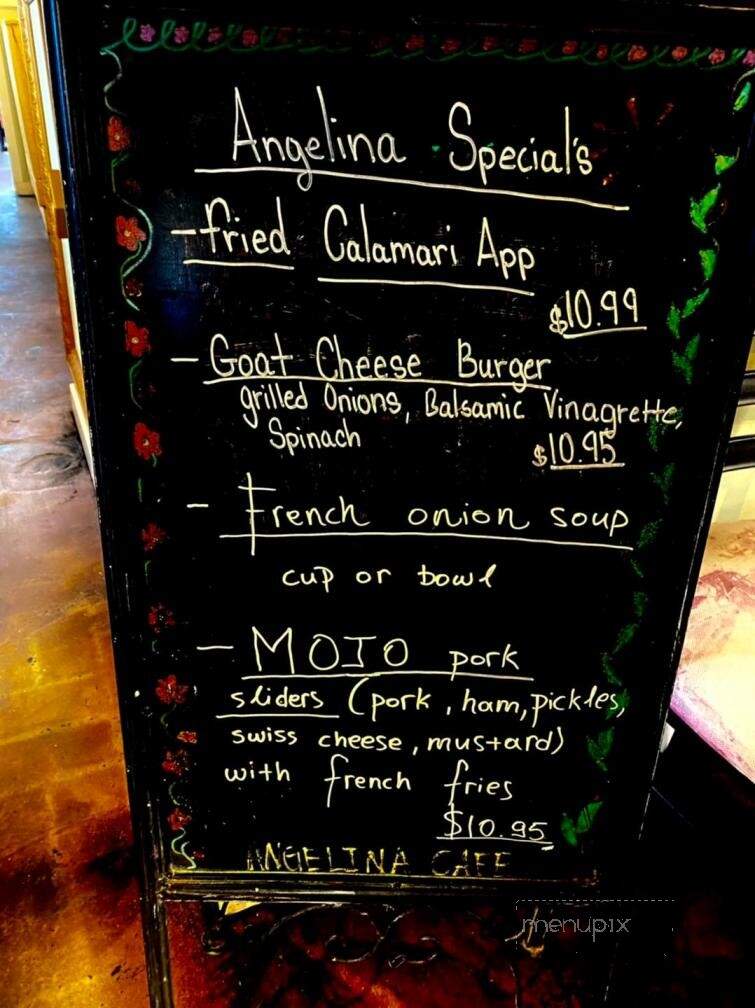 Angelina Special's
- fried Calamari App
$10.99
- Goat Cheese Burger
grilled Onions, Balsamic Vinagrette,
Spinach
$10.95
- French onion soup
cup or bowl
- MOJO pork
sliders (pork, ham, pickles,
swiss cheese, mustard)
with french fries
$10.95
ANGELINA CAFE
menupix